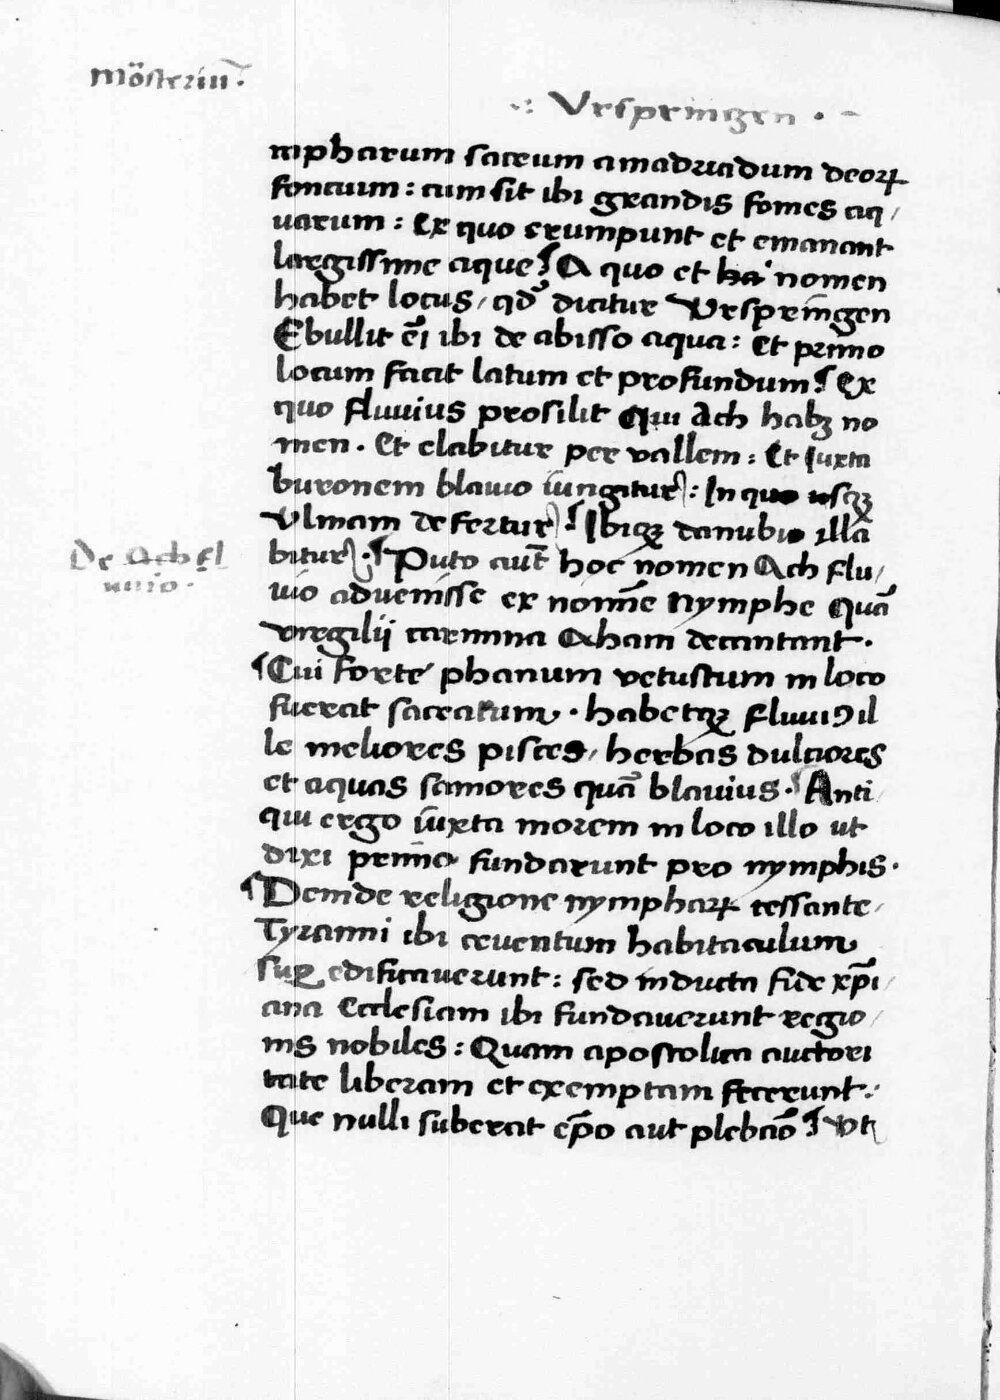 mōsteriū.
.: Vrspringen . -
mpharum sacrum amadriadum deoꝝ
foncium : cum sit ibi grandis fomes aq/
uarum : Ex quo erumpunt et emanant
largissime aque : A quo et ha' nomen
habet locus / qd' dicitur Vrsprīngen
Ebullit em̄ ibi de abisso aqua : Et primo
locum facit latum et profundum : Ex
quo fluuius prosilit Qui Ach habꝫ no
men . Et elabitur per vallem : Et Iuxta
buronem blauio iūngitur : In quo usqꝫ
Vlmam defertur : Ibiqꝫ danubio illa
bitur . Puto aut̄ hoc nomen Ach flu/
De Ach fl
uuio .
uio aduenisse ex nomīe Nymphe Quā
virgilij carmina Acham decantant .
Cui forte phanum vetustum in loco
fuerat sacratum . habetqꝫ fluuiꝰ il
le meliores pisces / herbas dulciores
et aquas saniores quā blauius . Anti
qui ergo iuxta morem in loco illo ut
dixi primo fundarunt pro nymphis .
Deinde religione nymphaꝝ cessante /
Tyranni ibi ceuentum habitaculum
suꝝ edificauerunt : sed inducta fide xp̄i/
ana Ecclesiam ibi fundauerunt regio/
nis nobiles : Quam apostolica auctori
tate liberam et exemptam fecerunt .
Que nulli suberat ep̄o aut plebāo : Vt